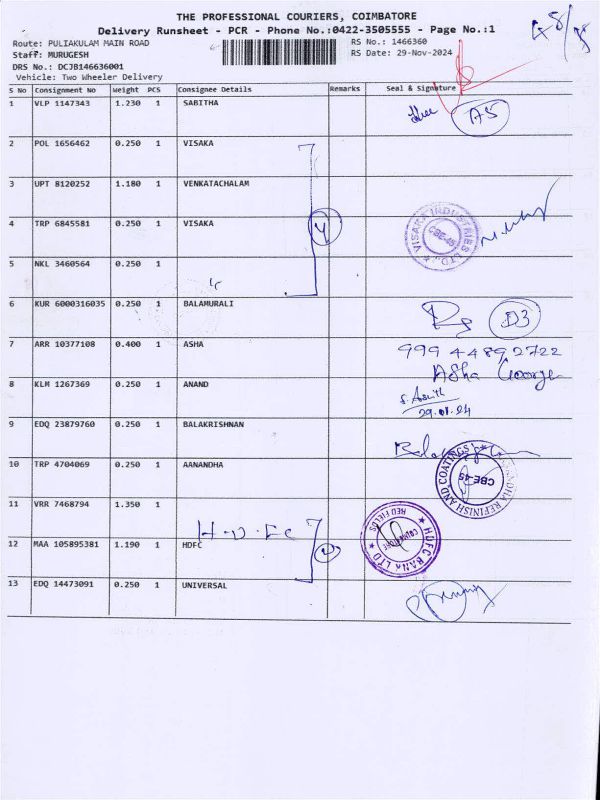 THE PROFESSIONAL COURIERS, COIMBATORE
Delivery Runsheet - PCR - Phone No.:0422-3505555 - Page No.:1
Route: PULIAKULAM MAIN ROAD
Staff: MURUGESH
DRS No.: DCJB146636001
Vehicle: Two Wheeler Delivery
RS No.: 1466360
RS Date: 29-Nov-2024
S No Consignment No Weight PCS Consignee Details Remarks Seal & Signature
1 VLP 1147343 1.230 1 SABITHA A5
2 POL 1656462 0.250 1 VISAKA
3 UPT 8120252 1.180 1 VENKATACHALAM
4 TRP 6845581 0.250 1 VISAKA 4 VISAKA INDUSTRIES LTD., CBE-45
5 NKL 3460564 0.250 1
6 KUR 6000316035 0.250 1 BALAMURALI D3
7 ARR 10377108 0.400 1 ASHA 999 44892722
Asha George
8 KLM 1267369 0.250 1 ANAND
9 EDQ 23879760 0.250 1 BALAKRISHNAN
10 TRP 4704069 0.250 1 AANANDHA REFINISH AND COATINGS CBE-45
11 VRR 7468794 1.350 1
H-D-FC
12 MAA 105895381 1.190 1 HDFC HDFC BANK LTD RED FIELDS COIMBATORE
13 EDQ 14473091 0.250 1 UNIVERSAL